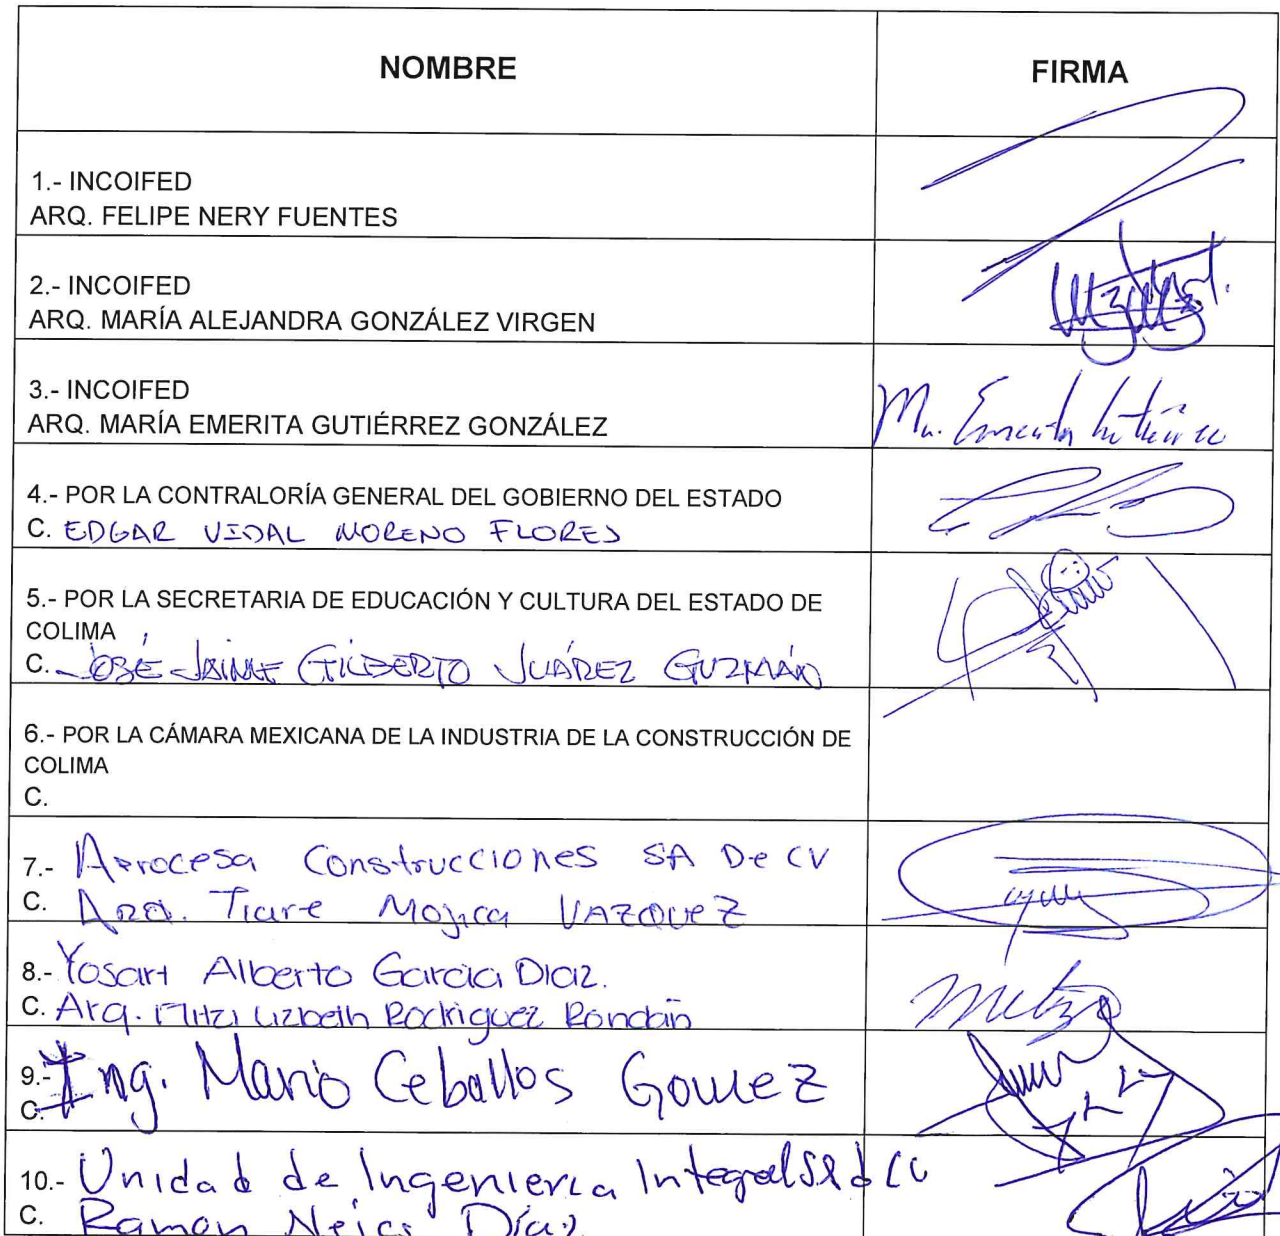 NOMBRE
FIRMA
1.- INCOIFED
ARQ. FELIPE NERY FUENTES
2.- INCOIFED
ARQ. MARÍA ALEJANDRA GONZÁLEZ VIRGEN
3.- INCOIFED
ARQ. MARÍA EMERITA GUTIÉRREZ GONZÁLEZ
Ma. Emerita Gutiérrez
4.- POR LA CONTRALORÍA GENERAL DEL GOBIERNO DEL ESTADO
C. EDGAR VIDAL MORENO FLORES
5.- POR LA SECRETARIA DE EDUCACIÓN Y CULTURA DEL ESTADO DE
COLIMA
C. JOSÉ JAIME GILBERTO JUÁREZ GUZMÁN
6.- POR LA CÁMARA MEXICANA DE LA INDUSTRIA DE LA CONSTRUCCIÓN DE
COLIMA
C.
7.- Construcciones SA De CV
C. Arq. Tiare Mojica VAZQUEZ
8.- Yosart Alberto Garcia Diaz.
C. Arq. Mitzi Lizbeth Rodriguez Rondán
9.- Ing. Mario Ceballos Gomez
C.
10.- Unidad de Ingenieria Integral SA d CV
C. Ramon Diaz